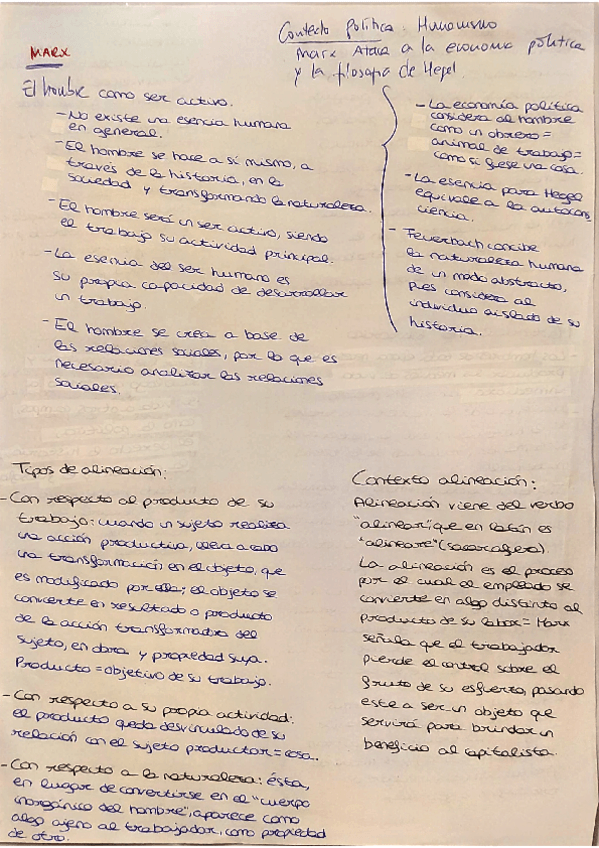 MARX
Contexto política: Humanismo
Marx Ataca a la economía política
y la filosofía de Hegel.
El hombre como ser activo.
- No existe una esencia humana
en general.
- El hombre se hace a sí mismo, a
través de la historia, en la
sociedad y transformando la naturaleza.
- El hombre será un ser activo, siendo
el trabajo su actividad principal.
- La esencia del ser humano es
su propia capacidad de desarrollar
un trabajo.
- El hombre se crea a base de
las relaciones sociales, por lo que es
necesario analizar las relaciones
sociales.
- La economía política
considera al hombre
como un obrero =
animal de trabajo =
como si fuese una cosa.
- La esencia para Hegel
equivale a la autocons
ciencia.
- Feuerbach concibe
la naturaleza humana
de un modo abstracto,
pues considera al
individuo aislado de su
historia.
Tipos de alineación:
- Con respecto al producto de su
trabajo: cuando un sujeto realiza
una acción productiva, lleva a cabo
una transformación en el objeto, que
es modificado por ella; el objeto se
convierte en resultado o producto
de la acción transformadora del
sujeto, en obra y propiedad suya.
Producto = objetivo de su trabajo.
- Con respecto a su propia actividad:
el producto queda desvinculado de su
relación con el sujeto productor = cosa..
- Con respecto a la naturaleza: ésta,
en lugar de convertirse en el "cuerpo
inorgánico del hombre", aparece como
algo ajeno al trabajador, como propiedad
de otro.
Contexto alineación:
Alineación viene del verbo
"alinear", que en latín es
"alineare"
La alineación es el proceso
por el cual el empleado se
convierte en algo distinto al
producto de su labor = Marx
señala que el trabajador
pierde el control sobre el
fruto de su esfuerzo, pasando
este a ser un objeto que
servirá para brindar un
beneficio al capitalista.